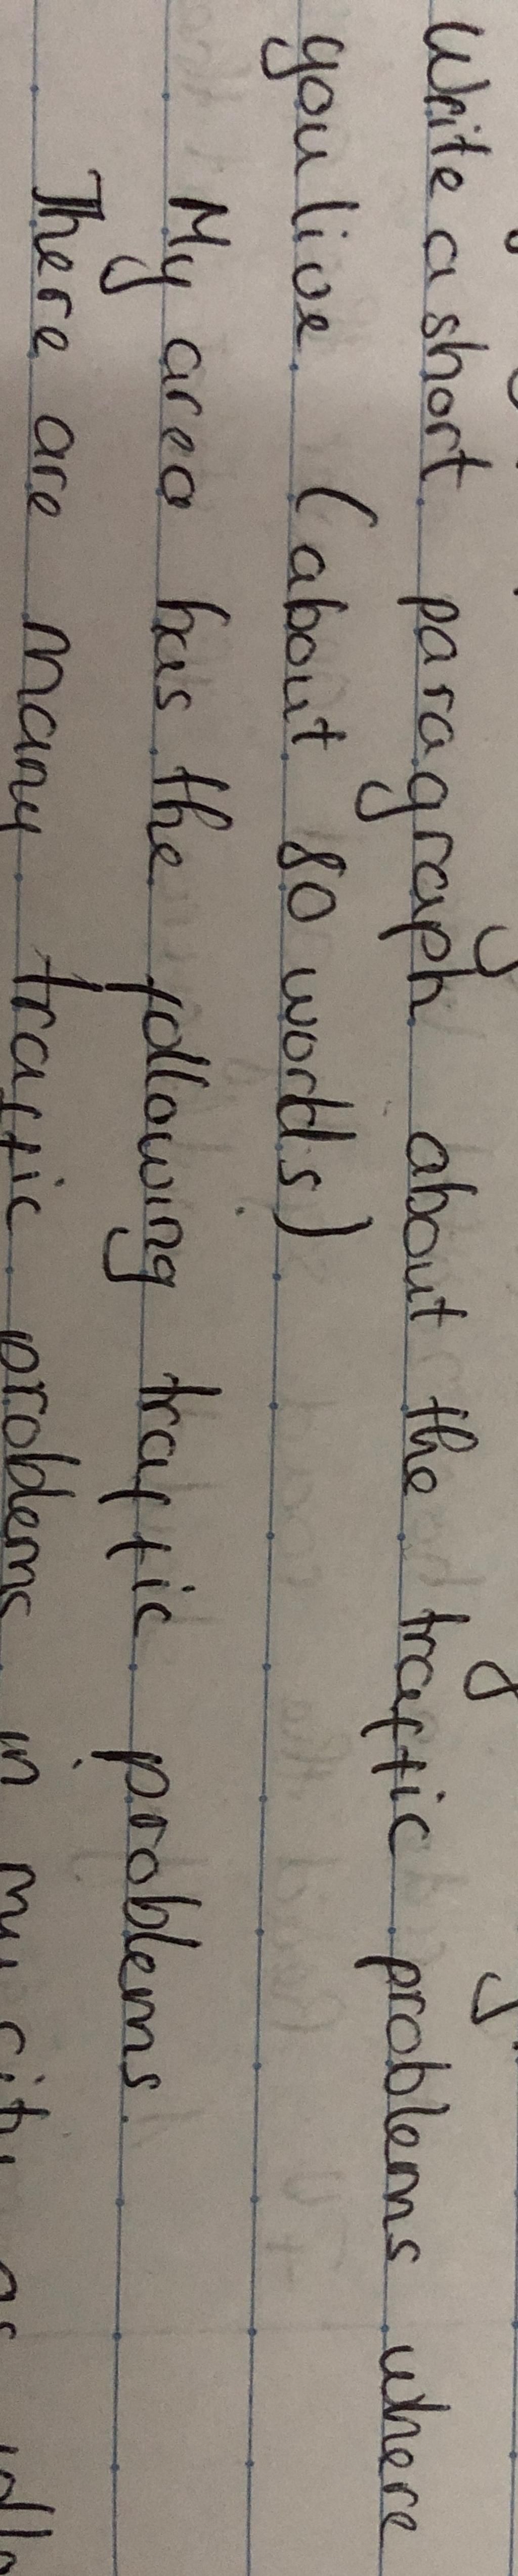 Write a short paragraph about the traffic problems where
you live (about 80 worlds)
My area has the following traffic problems.
There are many traffic problems in my city as